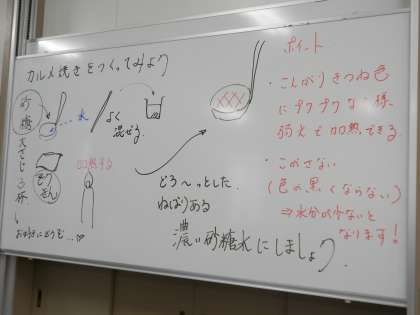 カルメ焼きをつくってみよう
砂糖
大さじ3杯
水
よく
混ぜる
加熱する
どろ〜っとした
ねばりある
濃い砂糖水にしましょう
ポイント
・こんがりきつね色
弱火で加熱できる
・こがさない
(色の黒くならない)
⇒水分が少ないと
なります!